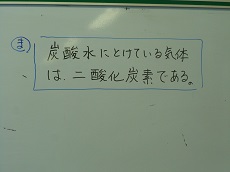 ま
炭酸水にとけている気体
は、二酸化炭素である。